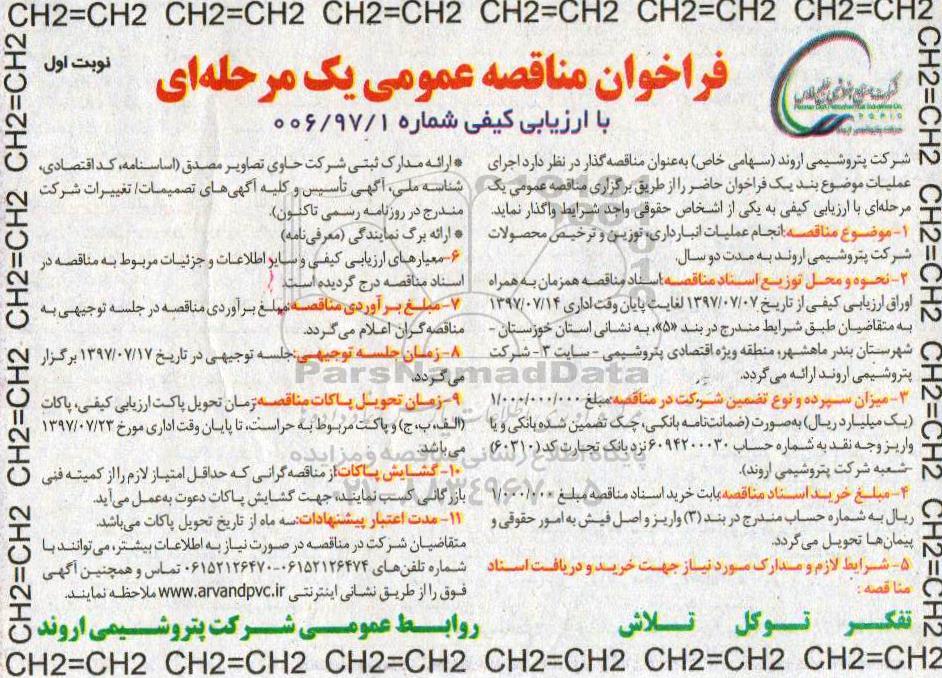 CH2=CH2 CH2=CH2 CH2=CH2 CH2=CH2 CH2=CH2 CH2=CH2
نوبت اول
فراخوان مناقصه عمومی یک مرحله‌ای
با ارزیابی کیفی شماره ۰۰۶/۹۷/۱
شرکت پتروشیمی اروند (سهامی خاص) به‌عنوان مناقصه‌گذار در نظر دارد اجرای
عملیات موضوع بند یک فراخوان حاضر را از طریق برگزاری مناقصه عمومی یک
مرحله‌ای با ارزیابی کیفی به یکی از اشخاص حقوقی واجد شرایط واگذار نماید.
۱- موضوع مناقصه: انجام عملیات انبارداری، توزین و ترخیص محصولات
شرکت پتروشیمی اروند به مدت دو سال.
۲- نحوه و محل توزیع اسناد مناقصه: اسناد مناقصه همزمان به همراه
اوراق ارزیابی کیفی از تاریخ ۱۳۹۷/۰۷/۰۷ لغایت پایان وقت اداری ۱۳۹۷/۰۷/۱۴
به متقاضیان طبق شرایط مندرج در بند «۵»، به نشانی استان خوزستان -
شهرستان بندر ماهشهر، منطقه ویژه اقتصادی پتروشیمی - سایت ۳ - شرکت
پتروشیمی اروند ارائه می‌گردد.
۳- میزان سپرده و نوع تضمین شرکت در مناقصه: مبلغ ۱/۰۰۰/۰۰۰/۰۰۰
(یک میلیارد ریال) به‌صورت (ضمانتنامه بانکی، چک تضمین شده بانکی و یا
واریز وجه نقد به شماره حساب ۶۰۹۴۲۰۰۰۳۰ نزد بانک تجارت کد (۶۰۳۱۰)
-شعبه شرکت پتروشیمی اروند).
۴- مبلغ خرید اسناد مناقصه: بابت خرید اسناد مناقصه مبلغ ۱/۰۰۰/۰۰۰
ریال به شماره حساب مندرج در بند (۳) واریز و اصل فیش به امور حقوقی و
پیمان‌ها تحویل می‌گردد.
۵- شرایط لازم و مدارک مورد نیاز جهت خرید و دریافت اسناد
مناقصه:
* ارائه مدارک ثبتی شرکت حاوی تصاویر مصدق (اساسنامه، کد اقتصادی،
شناسه ملی، آگهی تأسیس و کلیه آگهی‌های تصمیمات/ تغییرات شرکت
مندرج در روزنامه رسمی تاکنون).
* ارائه برگ نمایندگی (معرفی‌نامه)
۶- معیارهای ارزیابی کیفی و سایر اطلاعات و جزئیات مربوط به مناقصه در
اسناد مناقصه درج گردیده است.
۷- مبلغ برآوردی مناقصه: مبلغ برآوردی مناقصه در جلسه توجیهی به
مناقصه‌گران اعلام می‌گردد.
۸- زمان جلسه توجیهی: جلسه توجیهی در تاریخ ۱۳۹۷/۰۷/۱۷ برگزار
می‌گردد.
۹- زمان تحویل پاکات مناقصه: زمان تحویل پاکت ارزیابی کیفی، پاکات
(الف، ب، ج) و پاکت مربوط به حراست، تا پایان وقت اداری مورخ ۱۳۹۷/۰۷/۲۳
می‌باشد.
۱۰- گشایش پاکات: از مناقصه‌گرانی که حداقل امتیاز لازم را از کمیته فنی
بازرگانی کسب نمایند، جهت گشایش پاکات دعوت به‌عمل می‌آید.
۱۱- مدت اعتبار پیشنهادات: سه ماه از تاریخ تحویل پاکات می‌باشد.
متقاضیان شرکت در مناقصه در صورت نیاز به اطلاعات بیشتر، می‌توانند با
شماره تلفن‌های ۰۶۱۵۲۱۲۶۴۷۴-۰۶۱۵۲۱۲۶۴۷۰ تماس و همچنین آگهی
فوق را از طریق نشانی اینترنتی www.arvandpvc.ir ملاحظه نمایند.
ParsNamadData
تفکر توکل تلاش
روابط عمومی شرکت پتروشیمی اروند
CH2=CH2 CH2=CH2 CH2=CH2 CH2=CH2 CH2=CH2 CH2=CH2
CH2=CH2 CH2=CH2 CH2=CH2 CH2=CH2
CH2=CH2 CH2=CH2 CH2=CH2 CH2=CH2